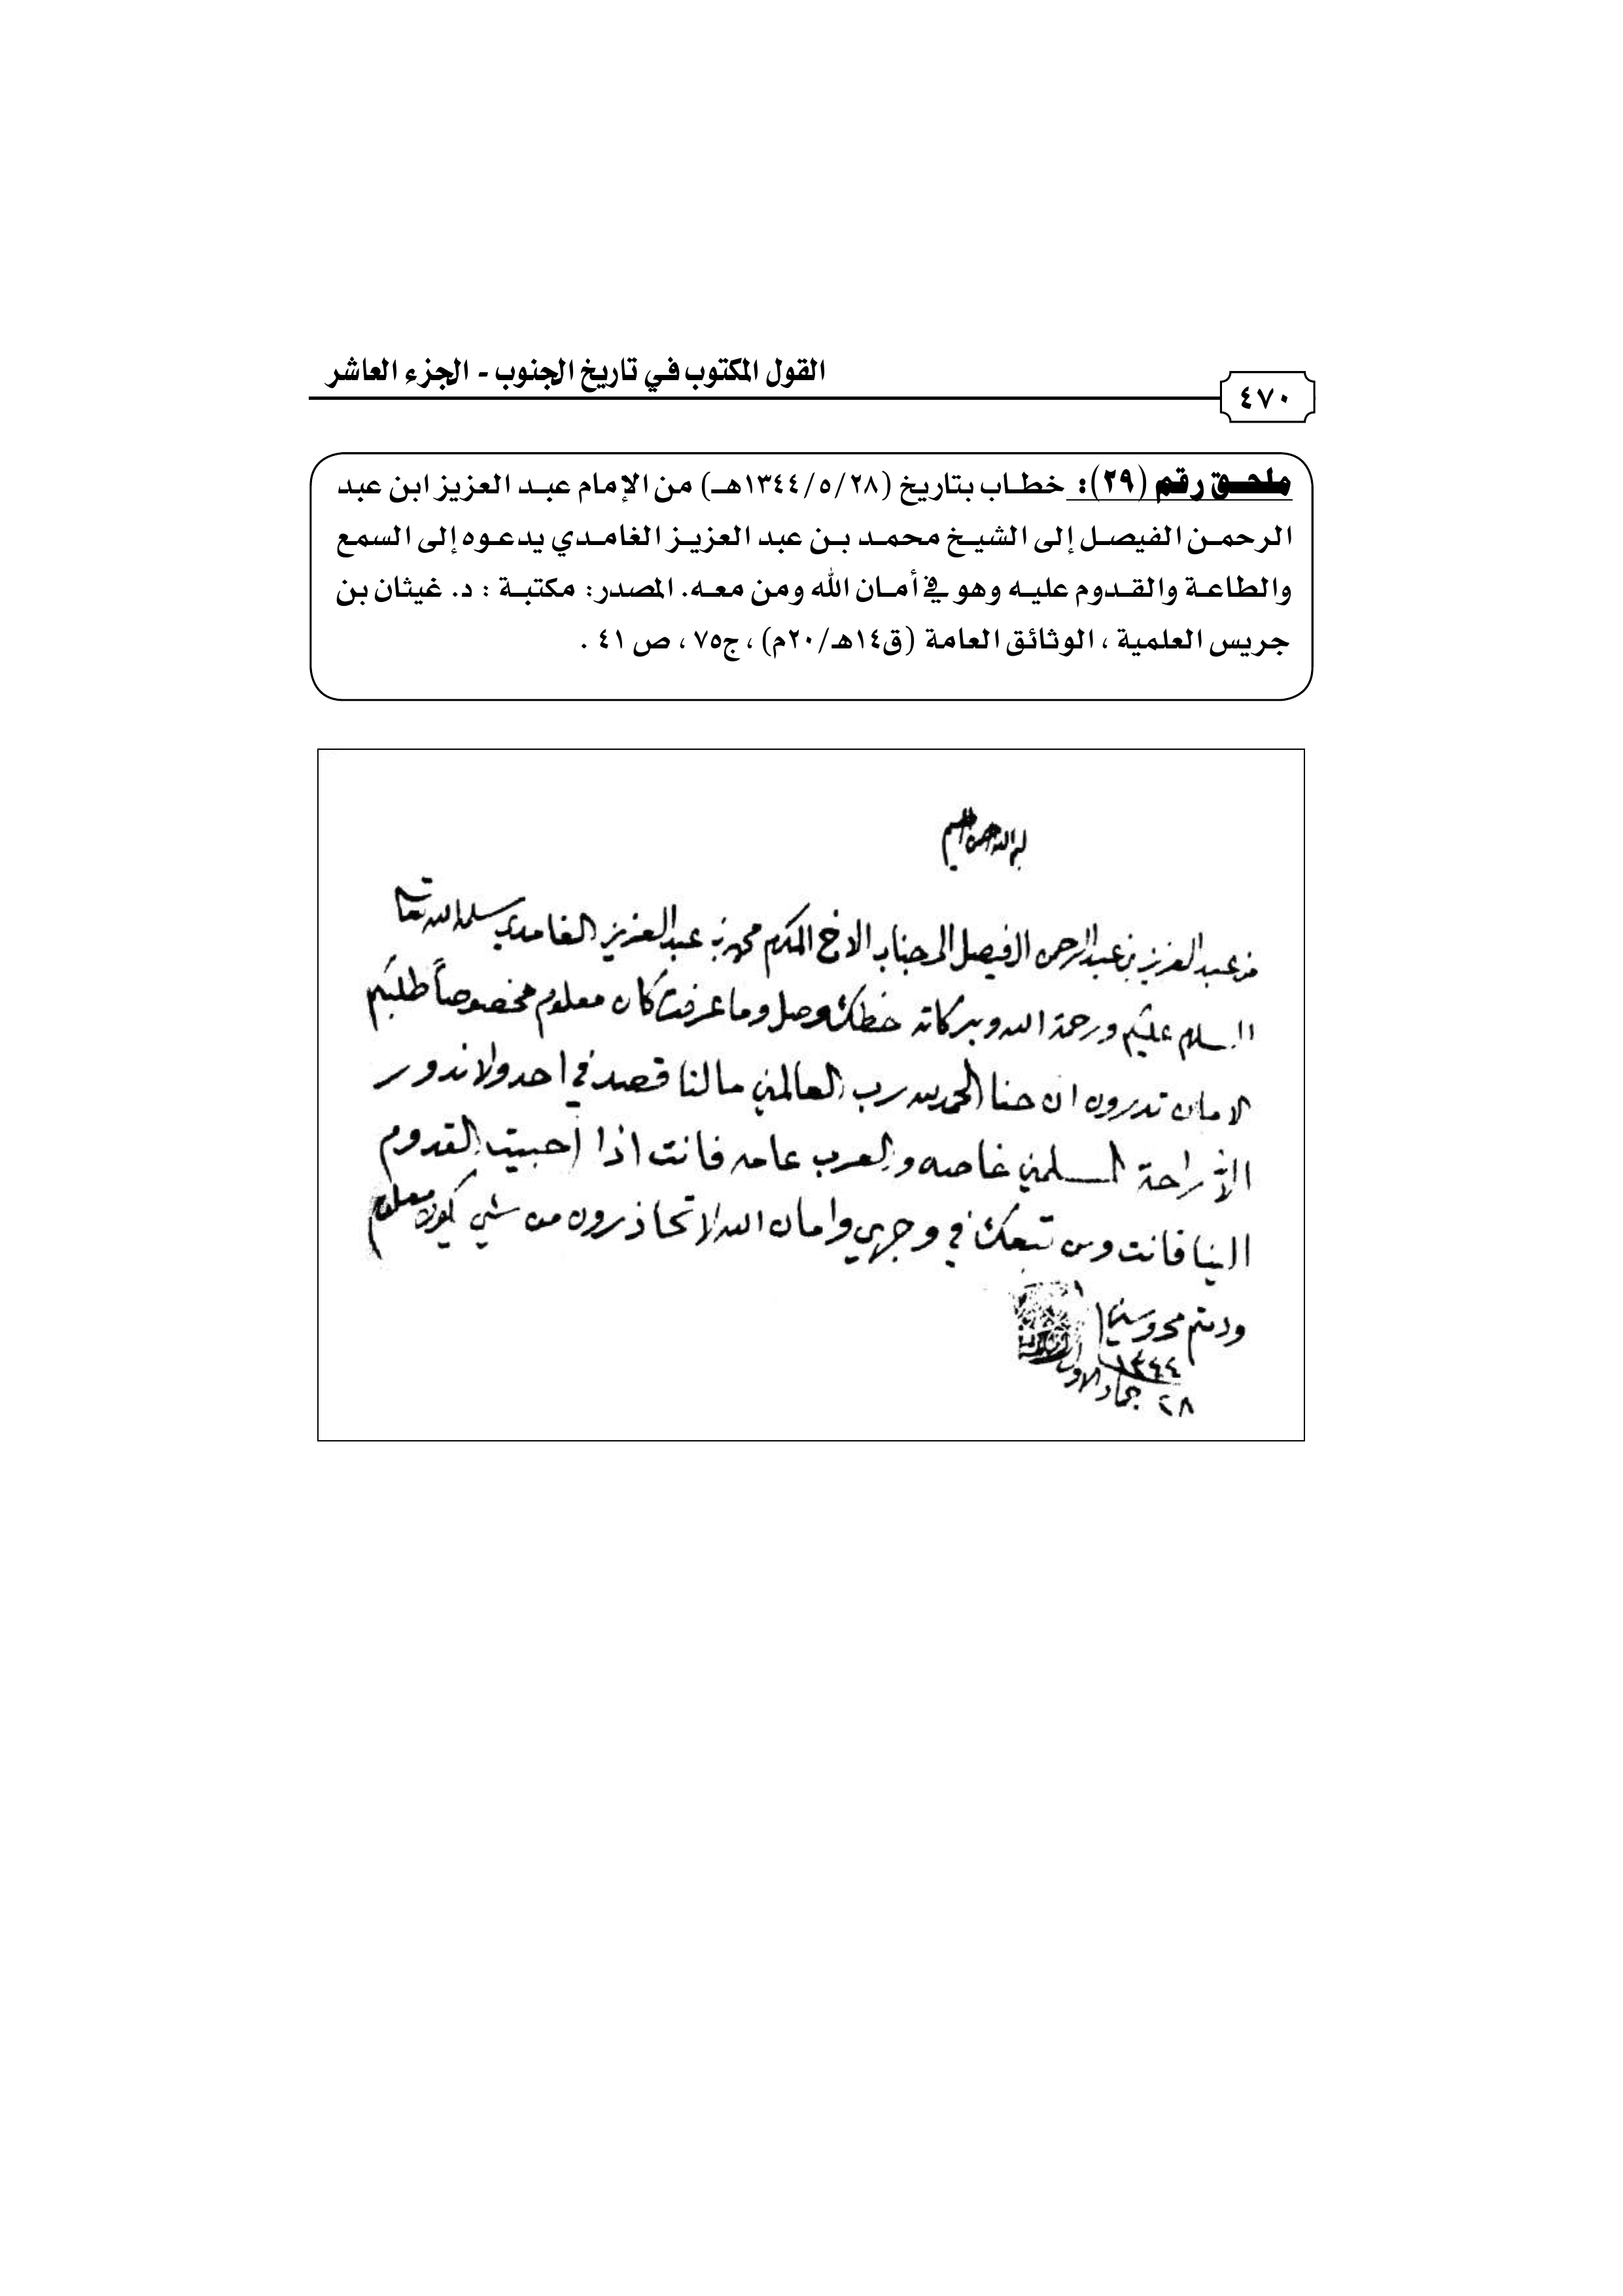 القول المكتوب في تاريخ الجنوب - الجزء العاشر
٤٧٠
ملحق رقم (٢٩): خطاب بتاريخ (٢٨/٥/١٣٤٤هـ) من الإمام عبد العزيز ابن عبد
الرحمن الفيصل إلى الشيخ محمد بن عبد العزيز الغامدي يدعوه إلى السمع
والطاعة والقدوم عليه وهو في أمان الله ومن معه. المصدر: مكتبة : د. غيثان بن
جريس العلمية ، الوثائق العامة (ق١٤هـ/٢٠م) ، ج٧٥ ، ص ٤١ .
بسم الله الرحمن الرحيم
من عبد العزيز بن عبد الرحمن الفيصل الى جناب الاخ المكرم محمد بن عبد العزيز الغامدي سلمه الله تعالى
السلام عليكم ورحمة الله وبركاته خطك وصل وما عرفت كان معلوم مخصوصاً طلبكم
الامان تدرون ان حنا الحمد لله رب العالمين مالنا قصد في احد ولا ندور
الا راحة المسلمين خاصه والعرب عامه فانت اذا احبيت القدوم
الينا فانت ومن تبعك في وجهي وامان الله لا تحاذرون من شي يكون معلوم
ودمتم محروسين
١٣٤٤
٢٨ جماد الاول